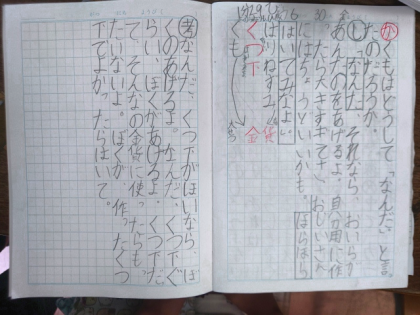 かくもはどうして「なんだ」と言っ
たのだろうか。
し「なんだ、それなら、おいらが
あんたのをあげるよ。自分用に作っ
たら大きすぎてさ、おじいさん
にはちょうどいいかも。ほらほら
はいてみなよ。
はりねずみ
くつ下 金貨
くも
考なんだ、くつ下がほしいなら、ぼ
くのあげるよ。なんだ、くつ下ぐ
らい、ぼくがあげるよ。くつ下だっ
て、そんなの金貨に使ったらもっ
たいないよ。ぼくが作ったくつ
下でよかったらはいて。